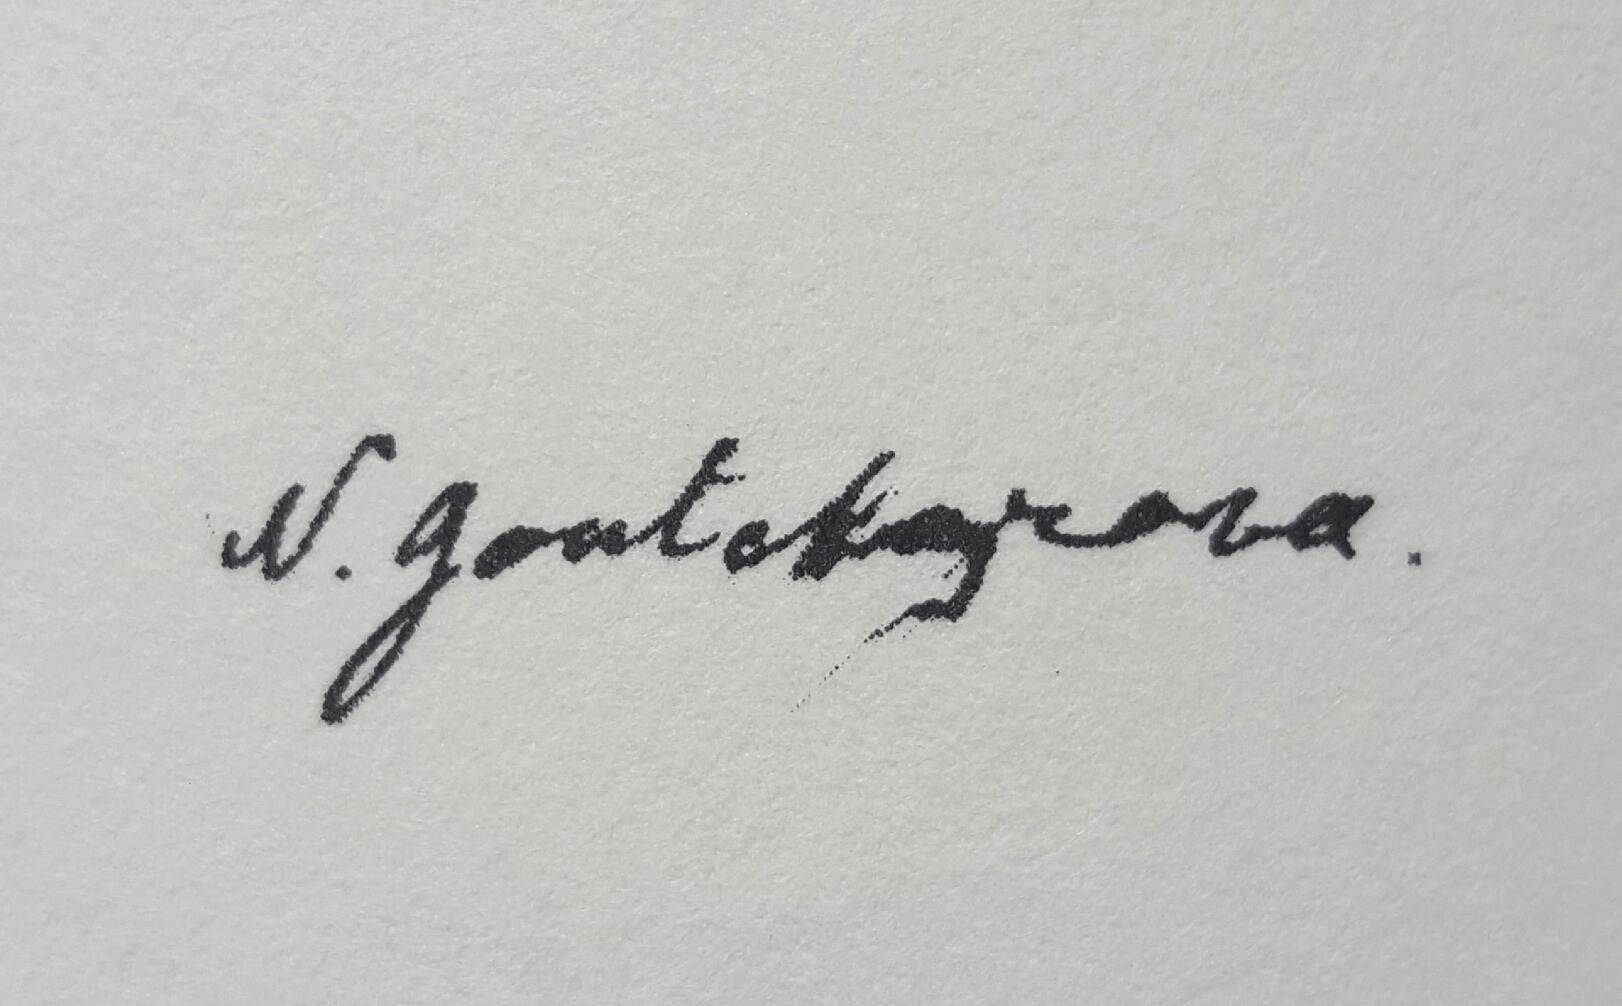 N. Gontcharova.